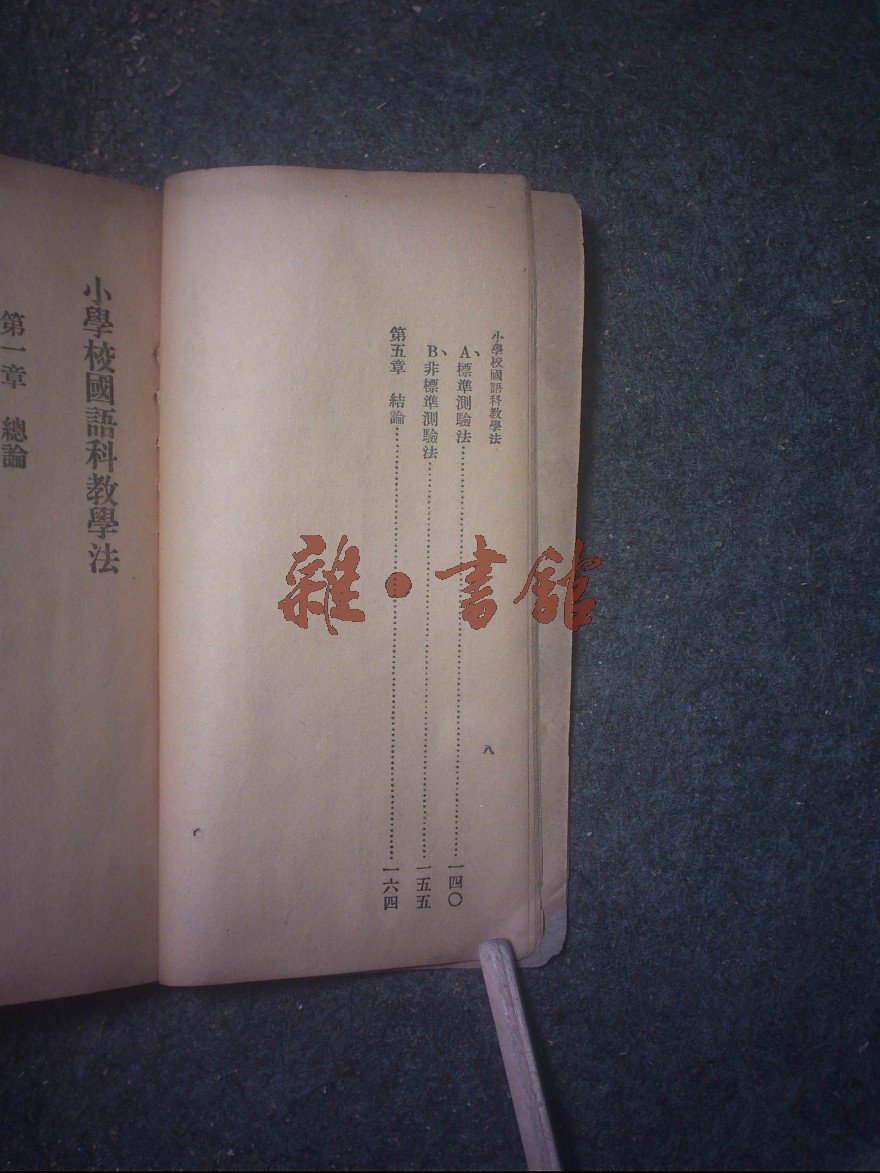 小學校國語科教學法
A、標準測驗法……一四〇
B、非標準測驗法……一五五
第五章 結論……一六四
八
小學校國語科教學法
第一章 總論
雜·書館